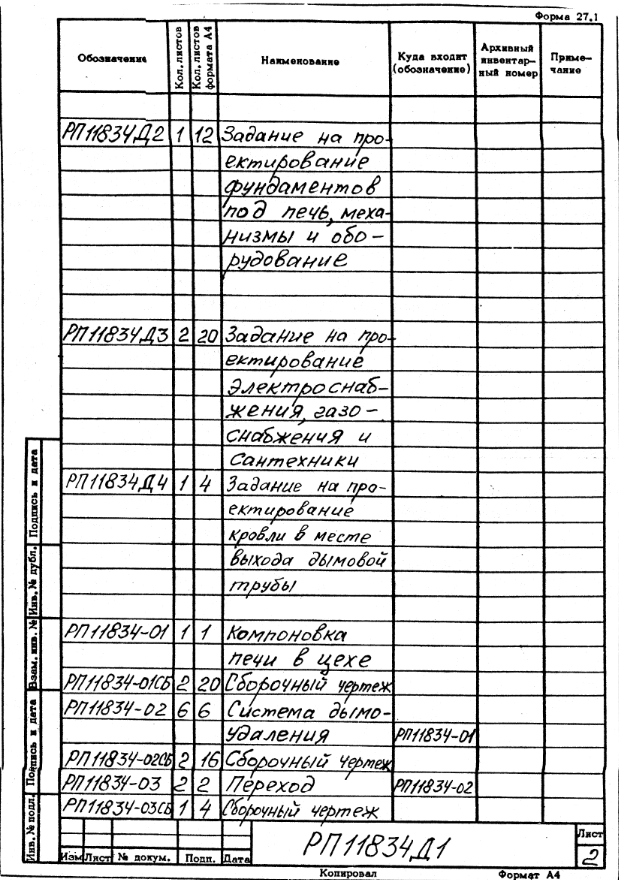 Форма 27.1
Обозначение
Кол. листов
Кол. листов формата А4
Наименование
Куда входит (обозначение)
Архивный инвентар-ный номер
Приме-чание
РП11834Д2 1 12 Задание на про-
ектирование
фундаментов
под печь, меха-
низмы и обо-
рудование
РП11834Д3 2 20 Задание на про-
ектирование
электроснаб-
жения, газо-
снабжения и
сантехники
РП11834Д4 1 4 Задание на про-
ектирование
кровли в месте
выхода дымовой
трубы
РП11834-01 1 1 Компоновка
печи в цехе
РП11834-01СБ 2 20 Сборочный чертеж
РП11834-02 6 6 Система дымо-
удаления РП11834-01
РП11834-02СБ 2 16 Сборочный чертеж
РП11834-03 2 2 Переход РП11834-02
РП11834-03СБ 1 4 Сборочный чертеж
Инв. № подл.
Подпись и дата
Взам. инв. №
Инв. № дубл.
Подпись и дата
Изм Лист № докум. Подп. Дата
РП11834Д1
Лист
2
Копировал
Формат А4